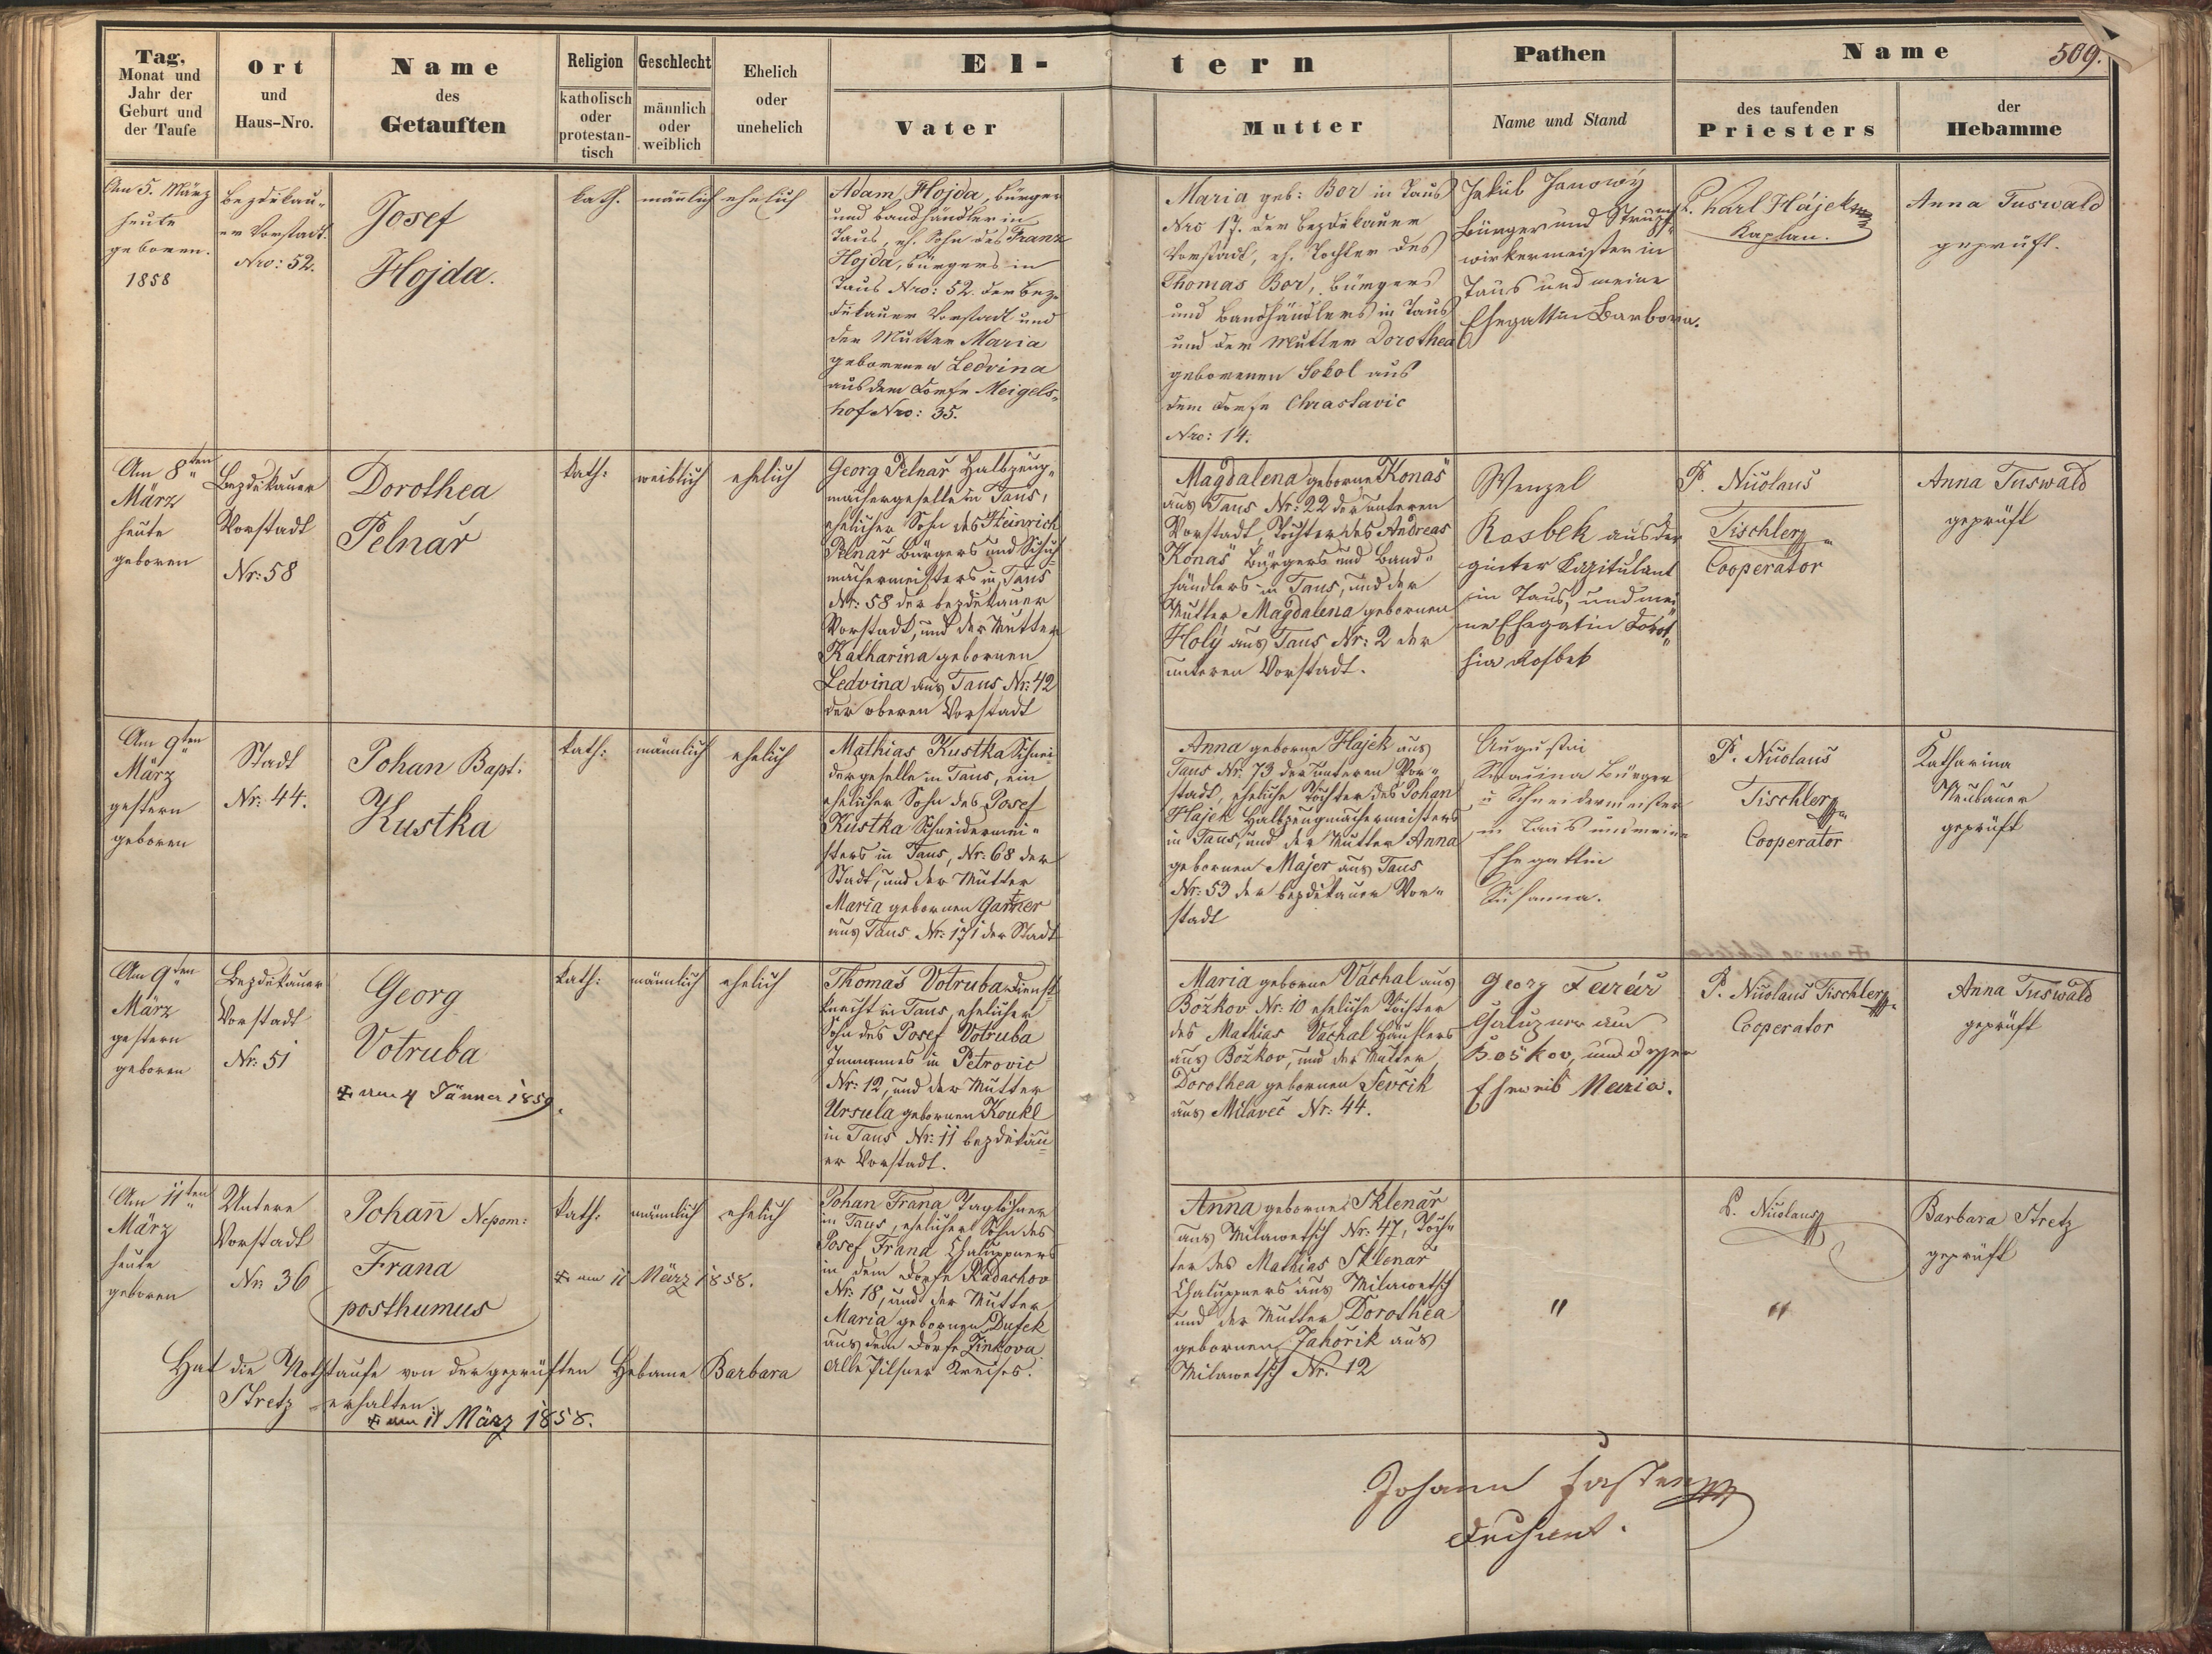 509.
Tag,
Monat und
Jahr der
Geburt und
der Taufe
Ort
und
Haus-Nro.
Name
des
Getauften
Religion
katholisch
oder
protestan-
tisch
Geschlecht
männlich
oder
weiblich
Ehelich
oder
unehelich
El-
tern
Vater
Mutter
Pathen
Name und Stand
Name
des taufenden
Priesters
der
Hebamme
Am 5. März
heute
geboren.
1858
Bezdiekau-
er Vorstadt.
Nro: 52.
Josef
Hojda.
kath.
männlich
ehelich
Adam Hojda, Bürger
und Bandhändler in
Taus, eh. Sohn des Franz
Hojda, Bürgers in
Taus Nro: 52. der Bez-
diekauer Vorstadt und
der Mutter Maria
geborenen Ledvina
aus dem Dorfe Meigels-
hof Nro: 35.
Maria geb: Bor in Taus
Nro 17. der Bezdiekauer
Vorstadt, eh. Tochter des
Thomas Bor, Bürgers
und Bandhändlers in Taus
und der Mutter Dorothea
geborenen Sokol aus
dem Dorfe Chrastavic
Nro: 14.
Jakub Janowý
Bürger und Strumpf-
wirkermeister in
Taus und meine
Ehegattin Barbora.
P. Karl Hájek
Kaplan.
Anna Tuswald
geprüft.
Am 8ten
März
heute
geboren
Bezdiekauer
Vorstadt
Nr: 58
Dorothea
Pelnař
kath:
weiblich
ehelich
Georg Pelnař Halbzeug-
machergeselle in Taus,
ehelicher Sohn des Heinrich
Pelnař Bürgers und Schuh-
machermeisters in Taus
Nr: 58 der bezdiekauer
Vorstadt, und der Mutter
Katharina gebornen
Ledvina aus Taus Nr: 42
der oberen Vorstadt
Magdalena geborne Konaš
aus Taus Nr: 22 der unteren
Vorstadt, Tochter des Andreas
Konaš Bürgers und Band-
händlers in Taus, und der
Mutter Magdalena gebornen
Holý aus Taus Nr: 2 der
unteren Vorstadt.
Wenzel
Rosbek aus der
Kapitulant
in Taus, und mei
ne Ehegatin Dorot-
hia Rosbek
P. Nicolaus
Tischler
Cooperator
Anna Tuswald
geprüft
Am 9ten
März
gestern
geboren
Stadt
Nr: 44.
Johan Bapt:
Kustka
kath:
männlich
ehelich
Mathias Kustka Schnei
dergeselle in Taus, ein
ehelicher Sohn des Josef
Kustka Schneidermei-
sters in Taus, Nr: 68 der
Stadt, und der Mutter
Maria gebornen Gartner
aus Taus Nr: 171 der Stadt
Anna geborne Hajek aus
Taus Nr: 73 der unteren Vor-
stadt, eheliche Tochter des Johan
Hajek Halbzeugmachermeisters
in Taus, und der Mutter Anna
gebornen Majer aus Taus
Nr: 53 der bezdiekauer Vor-
stadt
Augustin
Bürger
u Schneidermeister
in Taus und meine
Ehegattin
Susanna.
P. Nicolaus
Tischler
Cooperator
Katharina
Neubauer
geprüft
Am 9ten
März
gestern
geboren
Bezdiekauer
Vorstadt
Nr: 51
Georg
Votruba
am 4 Jänner 1859.
kath:
männlich
ehelich
Thomas Votruba Dienst-
knecht in Taus, ehelicher
Sohn des Josef Votruba
Inmannes in Petrovic
Nr: 12, und der Mutter
Ursula gebornen Koukl
in Taus Nr: 11 bezdiekau-
er Vorstadt.
Maria geborne Váchal aus
Božkov Nr: 10 eheliche Tochter
des Mathias Váchal Häuslers
aus Božkov, und der Mutter
Dorothea gebornen Ševčik
aus Milaveč Nr: 44.
Georg
Chalupner aus
Božkov, und dessen
Eheweib Maria.
P. Nicolaus Tischler
Cooperator
Anna Tuswald
geprüft
Am 11ten
März
heute
geboren
Untere
Vorstadt
Nr: 36
Johañ Nepom:
Frana
posthumus
kath:
männlich
ehelich
am 11 März 1858.
Johan Frana Taglöhner
in Taus, ehelicher Sohn des
Josef Frana Chaluppners
in dem Dorfe Radachov
Nr: 18, und der Mutter
Maria gebornen Dusek
aus dem Dorfe Žinkova
Alle Pilsner Kreises.
Anna geborne Sklenař
aus Milawetsch Nr: 47, Toch-
ter des Mathias Sklenař
Chaluppners aus Milawetsch
und der Mutter Dorothea
gebornen Jahořik aus
Milawetsch Nr. 12
"
P. Nicolaus
"
Barbara Stretz
geprüft
Hat die Nothtaufe von der geprüften Hebame Barbara
Stretz erhalten.
am 11 März 1858.
Johann
Dechant.